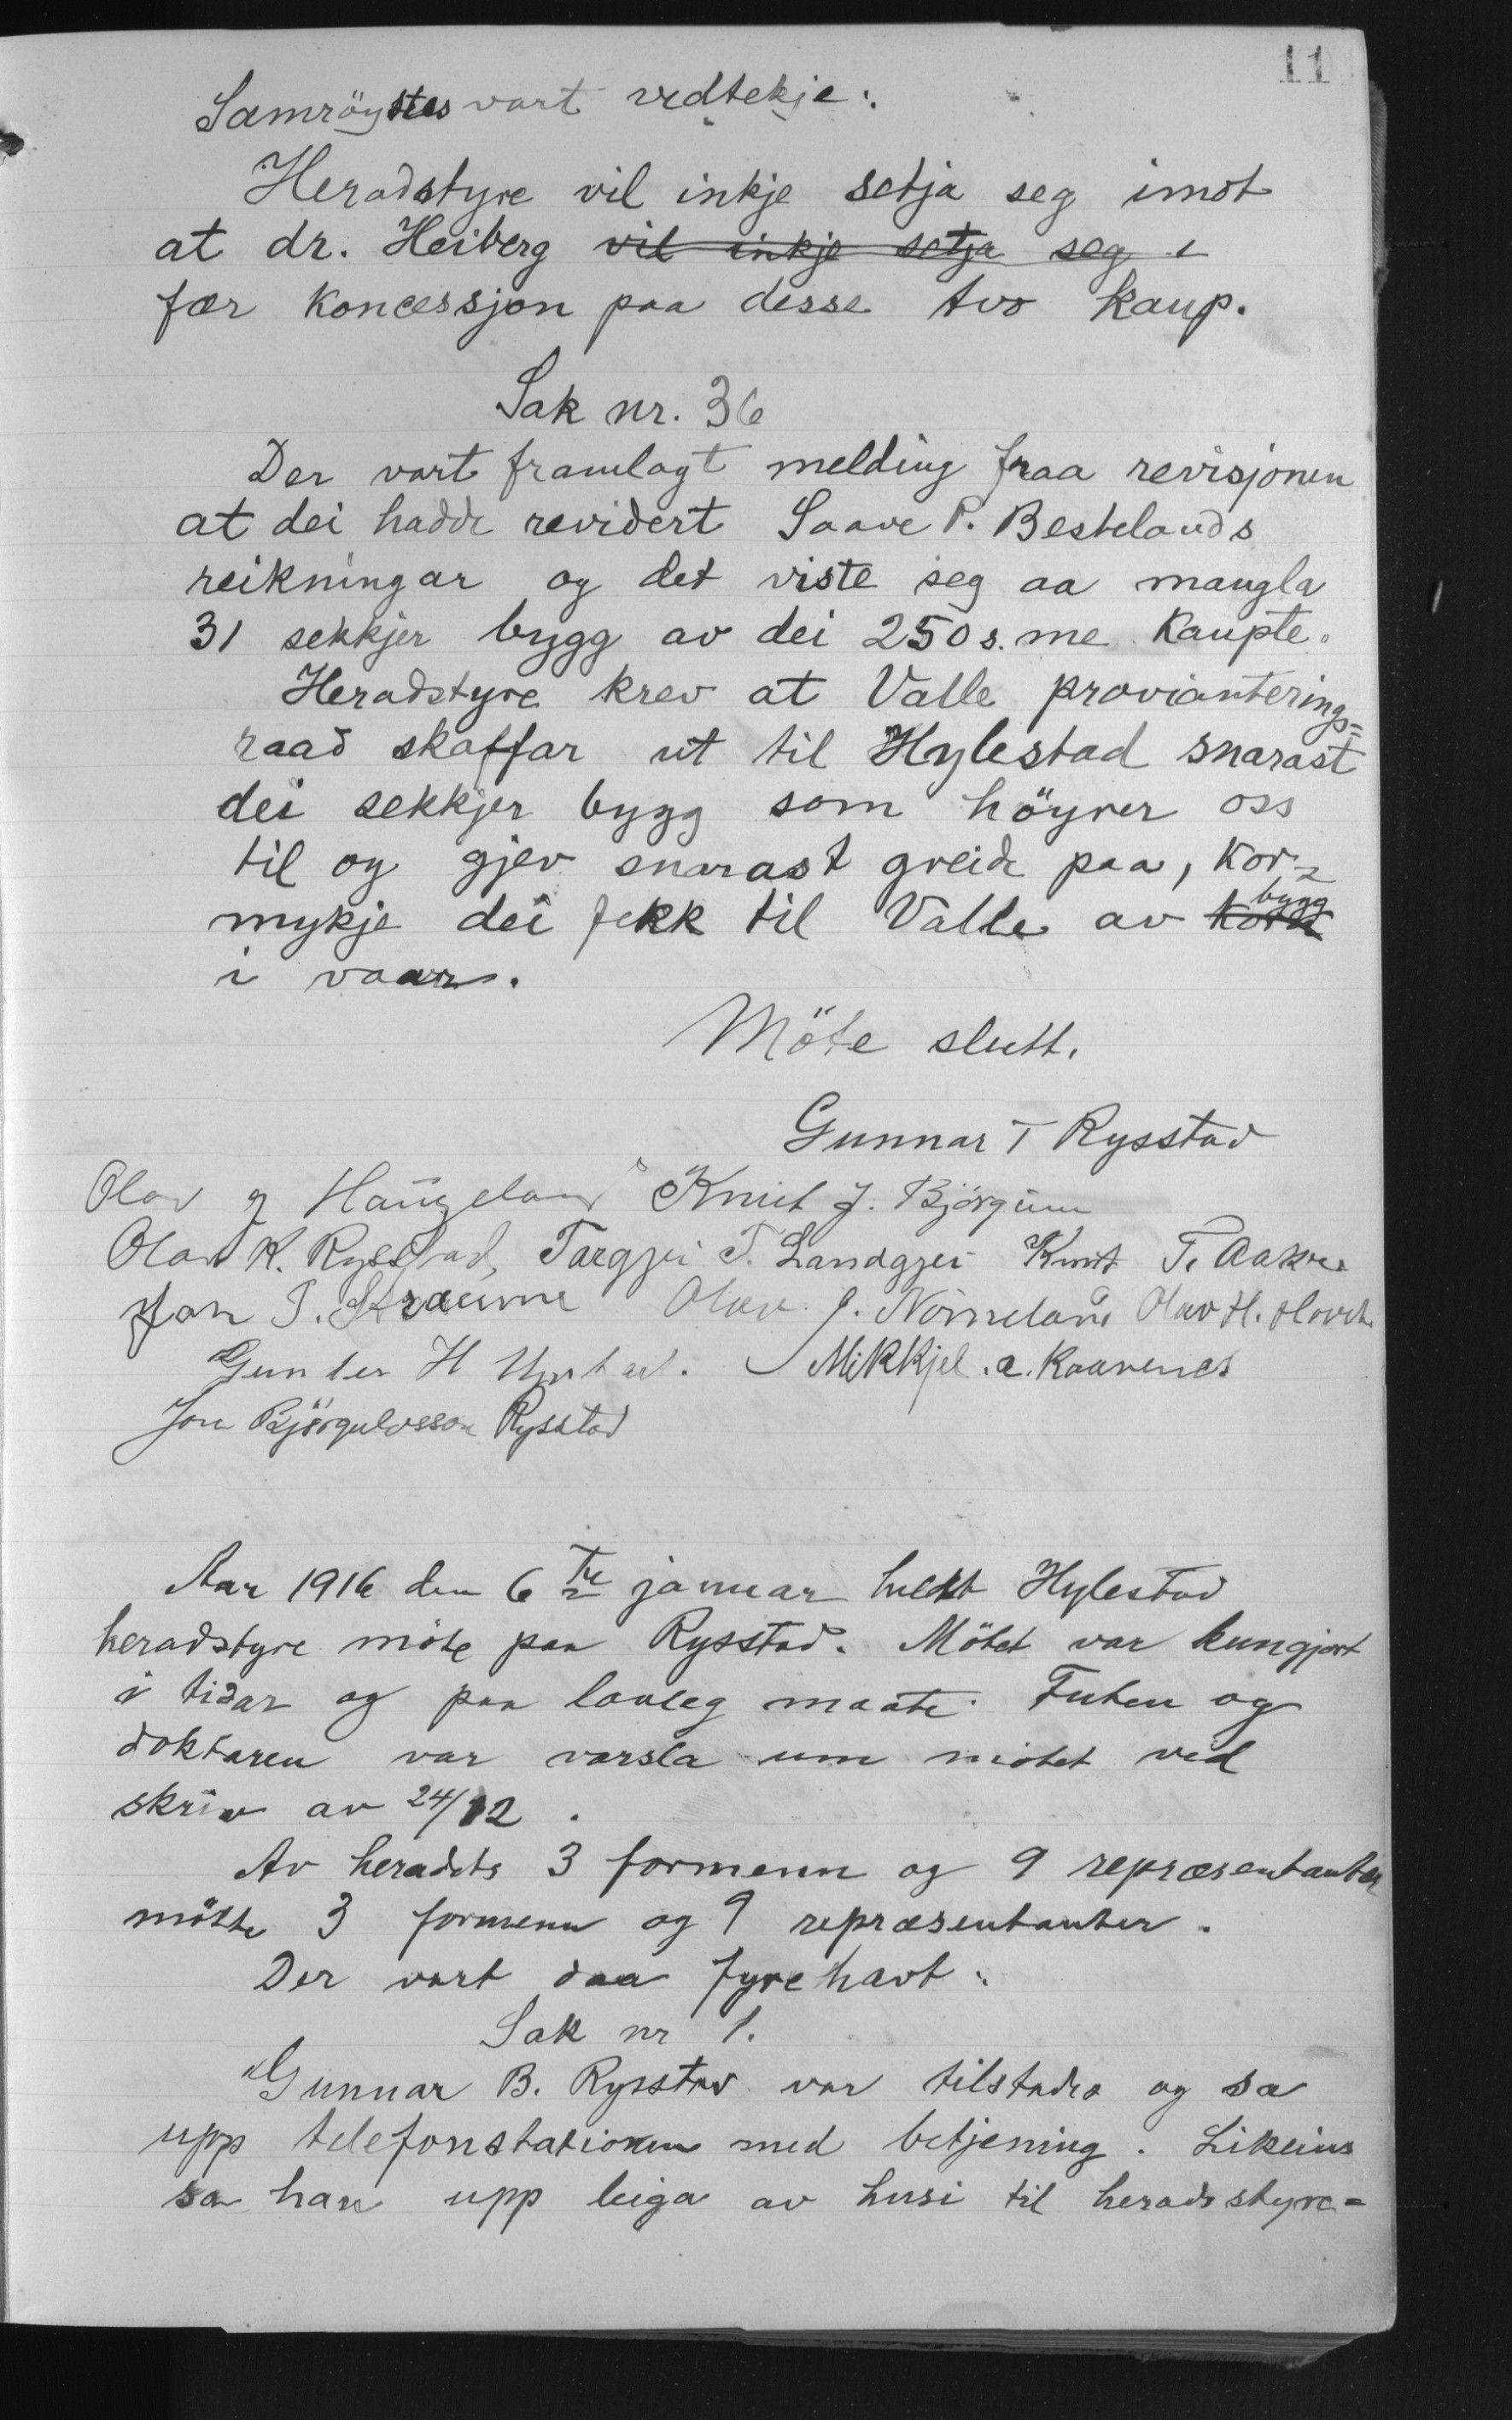 11
Samröystes vart vedtekje:
Heradstyre vil inkje setja seg imot
at dr. Heiberg vil inkje setja seg i
fær koncessjon paa desse tvo kaup.
Sak nr. 36
Der vart framlagt melding fraa revisjonen
at dei hadde revidert Saave P. Bestelands
reikningar og det viste seg aa mangla
31 sekkjer bygg av dei 250 s. me kaupte.
Heradstyre krev at Valle proviantering-
raad skaffar ut til Hylestad snarast
dei sekkjer bygg som höyrer oss
til og gjev snarast greide paa, kor-
mykje dei fekk til Valle av korn bygg
i vaar.
Möte slutt.
Gunnar T Rysstad
Olav g Haugeland Knut J. Björgum
Olav K. Rysstad, Targjei T. Landgjei Knut T. Aakre
Jon T. Straume Olav J. Nomeland Olav H. Hovet
Gunder H Mikkjel. a. Kaavenes
Jon Björgulvsson Rysstad
Aar 1916 den 6te januar heldt Hylestad
heradstyre möte paa Rysstad. Mötet var kungjort
i tidar og paa lovleg maate. Futen og
doktaren var varsla um mötet ved
skriv av 24/12.
Av heradets 3 formenn og 9 repræsentanter
mötte 3 formenn og 9 repræsentanter.
Der vart daa fyrehavt:
Sak nr 1.
Gunnar B. Rysstad var tilstades og sa
upp telefonstationen med betjening. Likeins
sa han upp leiga av husi til heradsstyre-